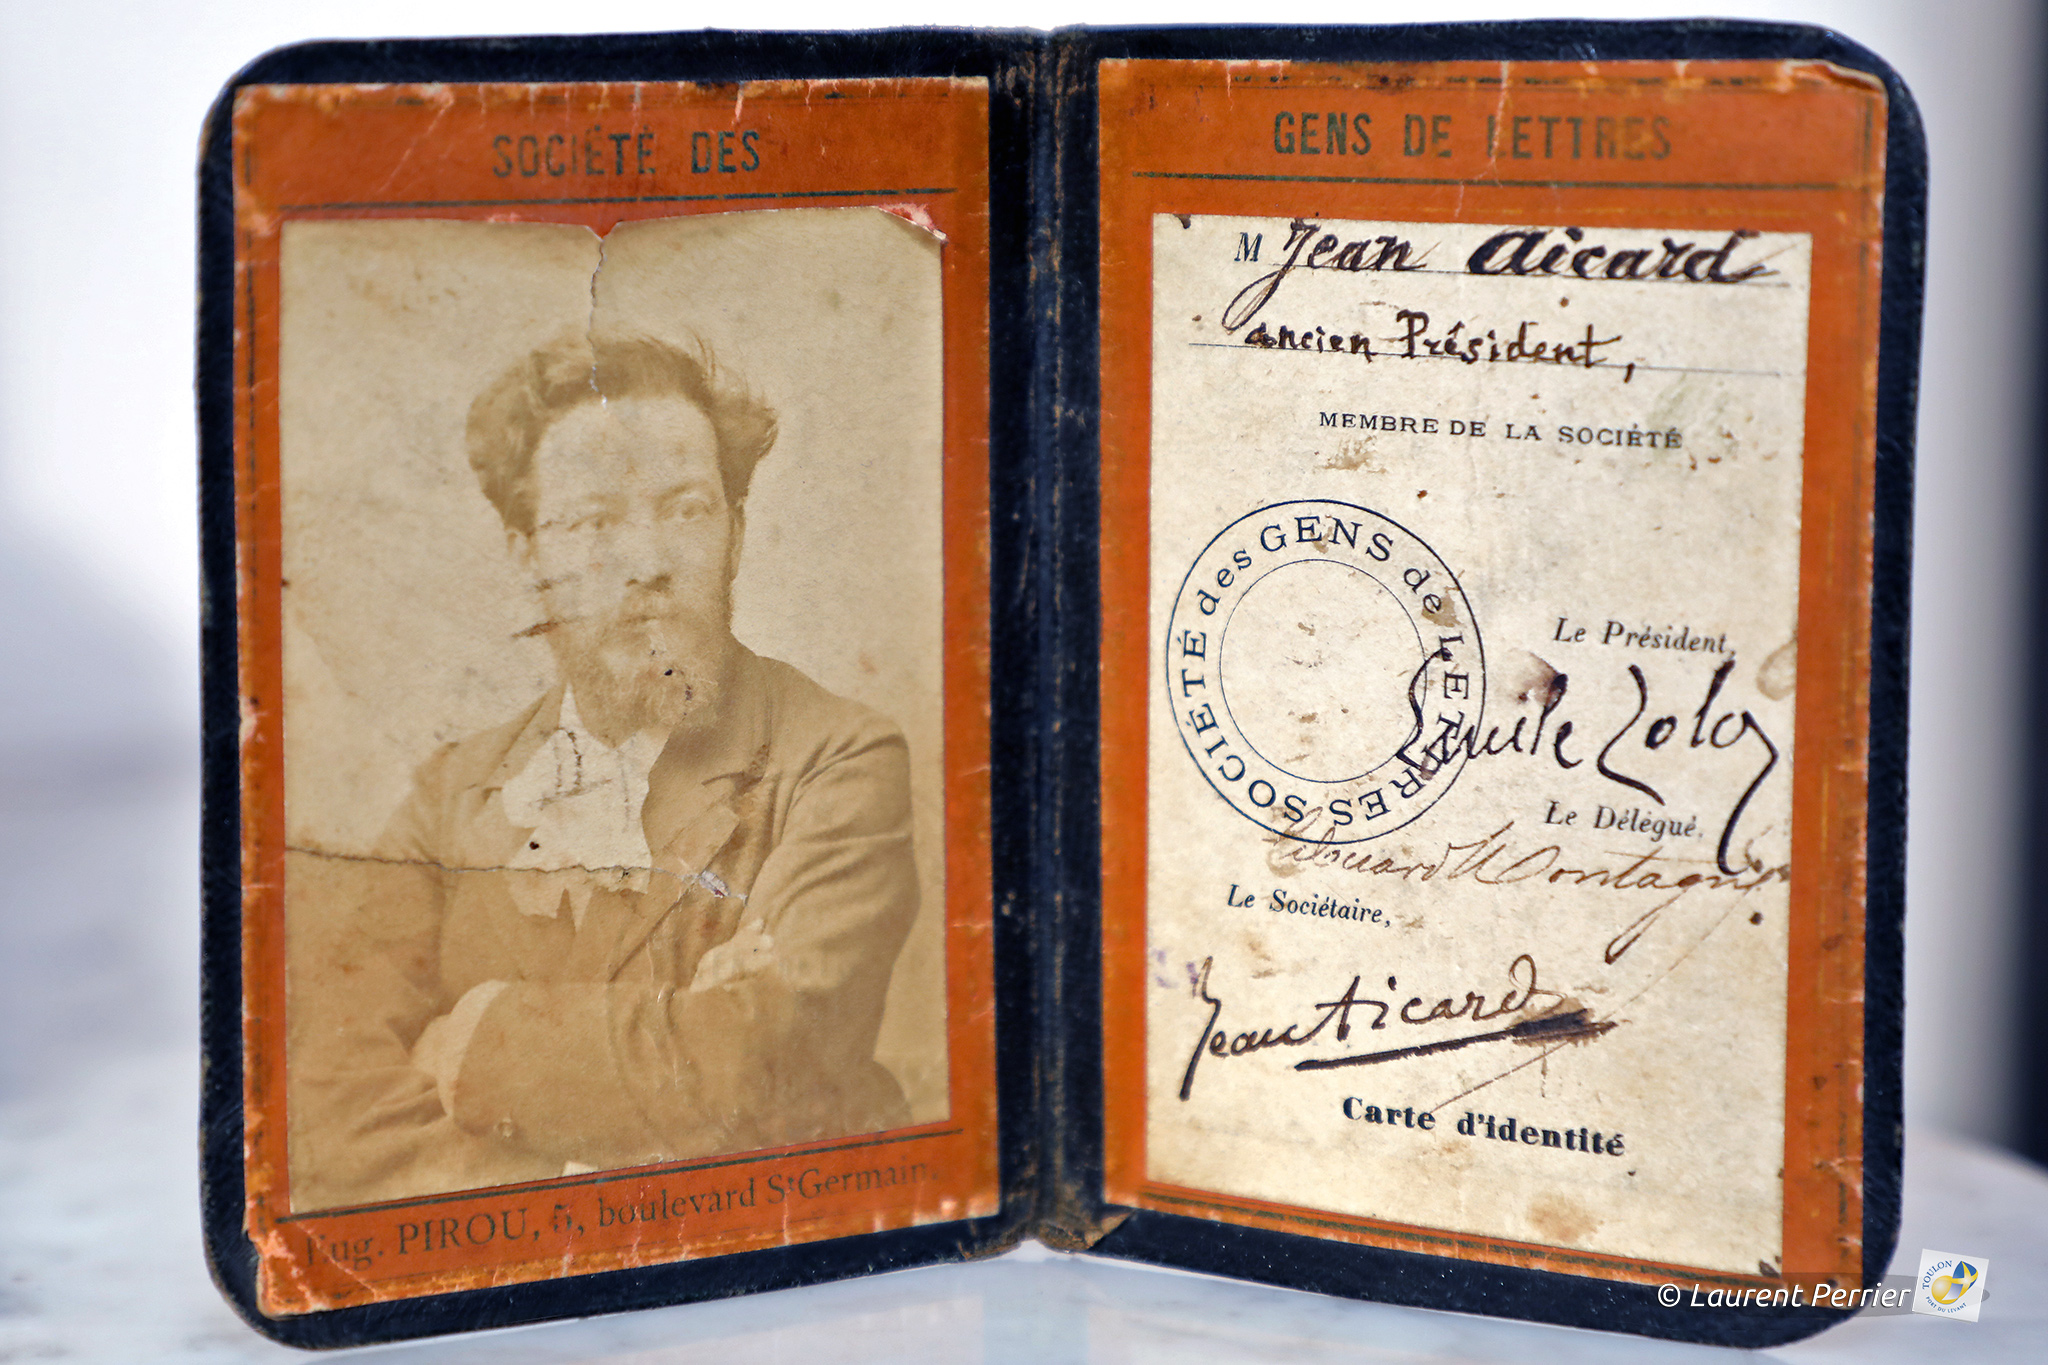 SOCIÉTÉ DES
Eug. PIROU, 5, boulevard St Germain.
GENS DE LETTRES
M Jean Aicard
ancien Président,
MEMBRE DE LA SOCIÉTÉ
SOCIÉTÉ des GENS de LETTRES
Le Président,
Emile Zola
Le Délégué,
Edouard Montagne
Le Sociétaire,
Jean Aicard
Carte d'identité
© Laurent Perrier
TOULON
PORT DU LEVANT